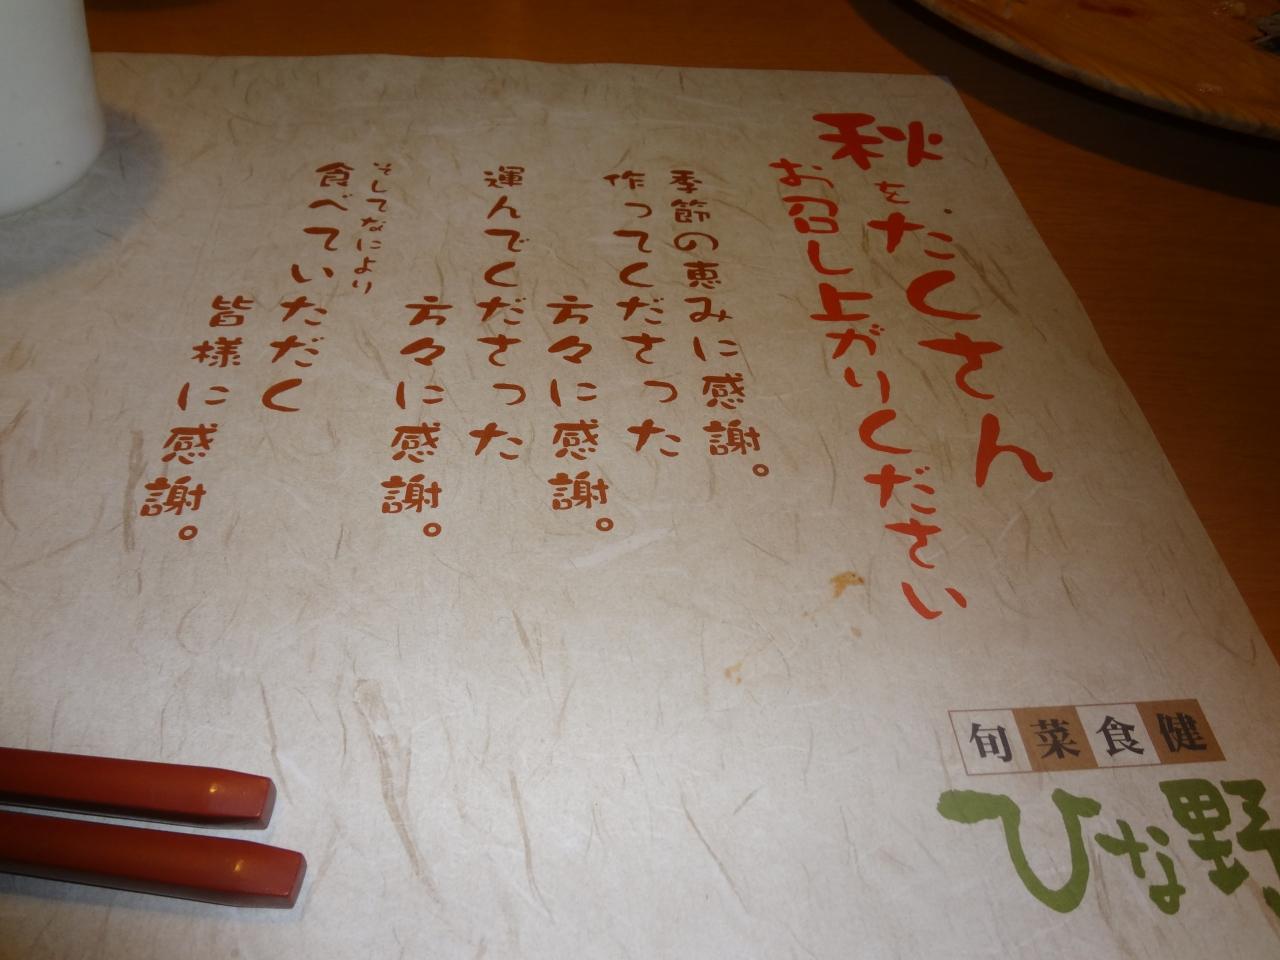 秋をたくさん
お召し上がりください
季節の恵みに感謝。
作ってくださった
方々に感謝。
運んでくださった
方々に感謝。
そしてなにより
食べていただく
皆様に感謝。
旬菜食健
ひな野